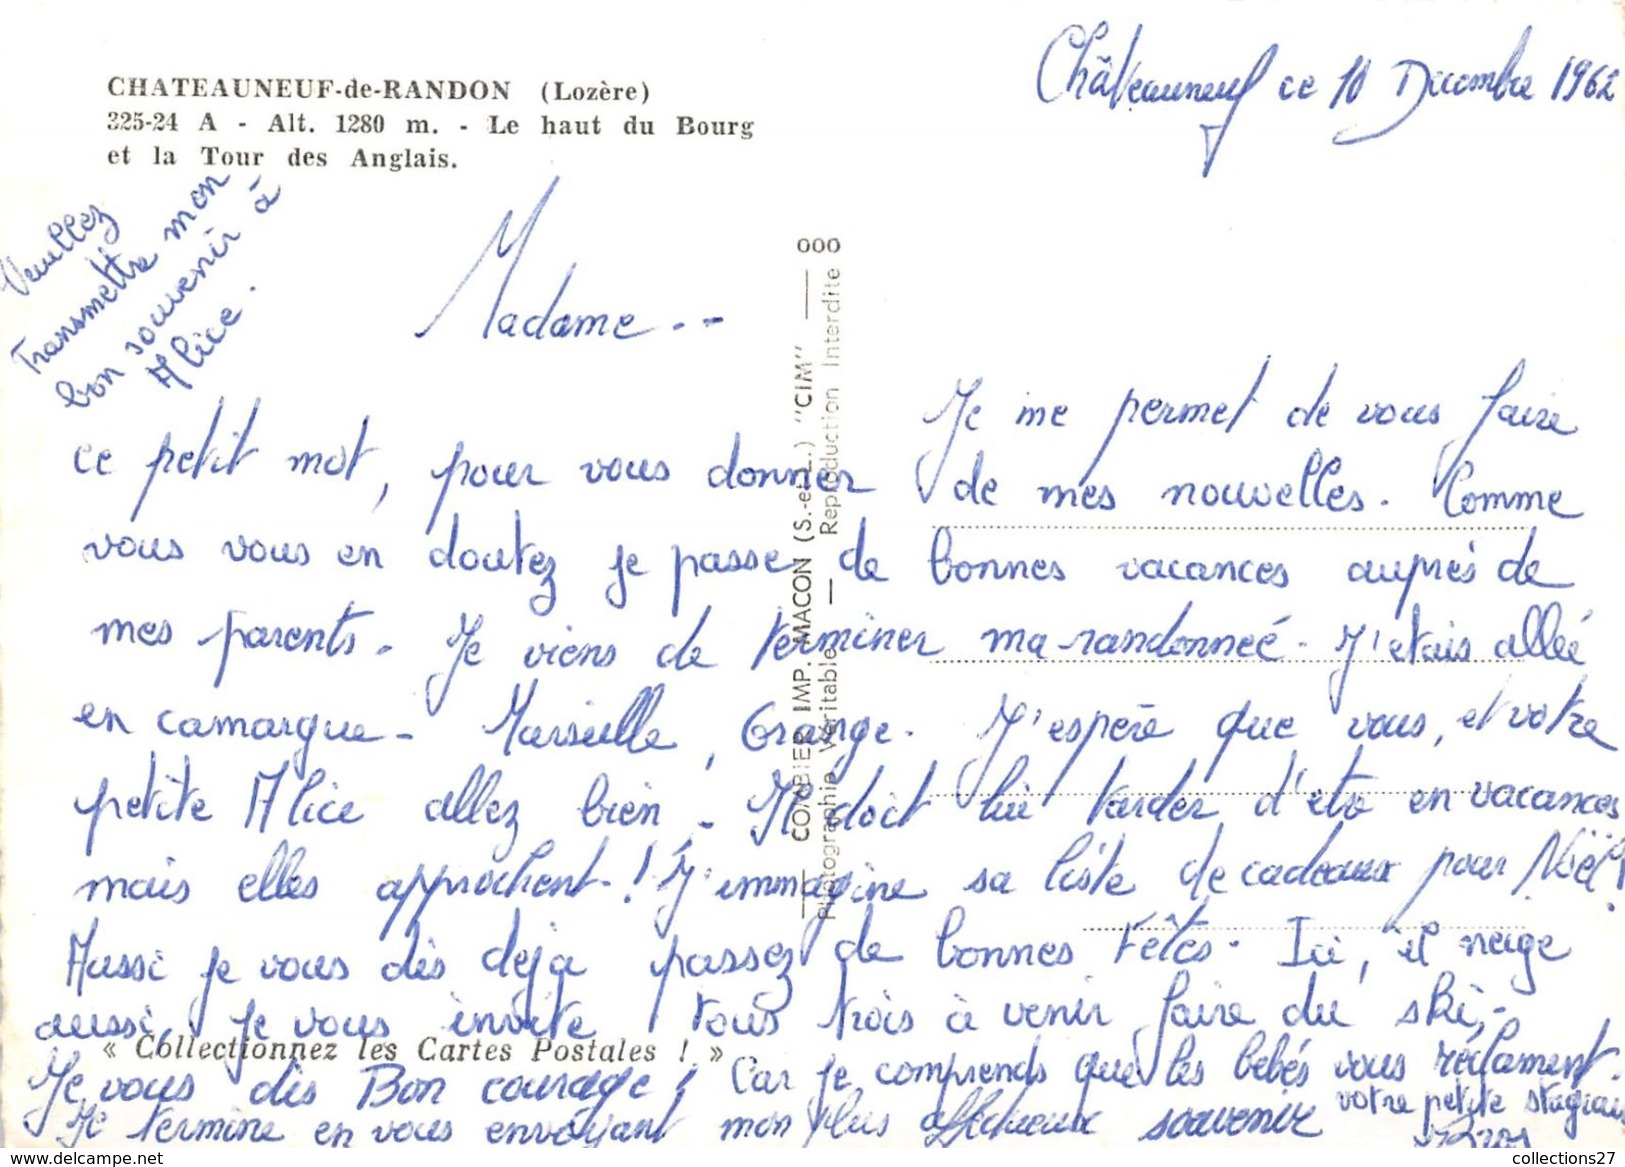 CHATEAUNEUF-de-RANDON (Lozère)
325-24 A - Alt. 1280 m. - Le haut du Bourg
et la Tour des Anglais.
Châteauneuf ce 10 Decembre 1962
Veuillez
Transmettre mon
bon souvenir à
Alice.
Madame --
Je me permet de vous faire
ce petit mot, pour vous donner de mes nouvelles. Comme
vous vous en doutez je passe de bonnes vacances auprès de
mes parents. Je viens de terminer ma randonneé. J'etais alleé
en camargue - Marseille, Orange. J'espère que vous, et votre
petite Alice allez bien. Il doit lui tarder d'etre en vacances
mais elles approchent-! J'immagine sa liste de cadeaux pour Noël!
Aussi je vous dis deja passez de bonnes Fêtes. Ici, il neige
aussi, je vous invite tous trois à venir faire du ski,-
Je vous dis Bon courage! Car je comprends que les bébés vous réclament.
Je termine en vous envoyant mon plus affectueux souvenir
votre petite
ooo
COMBIER IMP. MACON (S.-et-L.) "CIM"
Photographie Véritable — Reproduction Interdite
« Collectionnez les Cartes Postales ! »
collections27